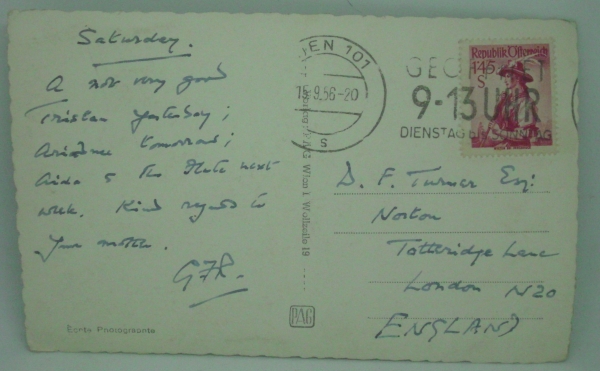 Saturday.
A not very good
Tristan yesterday;
Ariadne tomorrow;
Aida & The Flute next
week. Kind regards to
your mother.
GFR.
Echte Photographie
Wien I, Wollzeile 19
PAG
WIEN 101
15.9.56-20
s
GEÖFFNET
9-13 UHR
DIENSTAG BIS SONNTAG
Republik Österreich
1·45
S
D. F. Turner Esq:
Norton
Totteridge Lane
London N20
ENGLAND